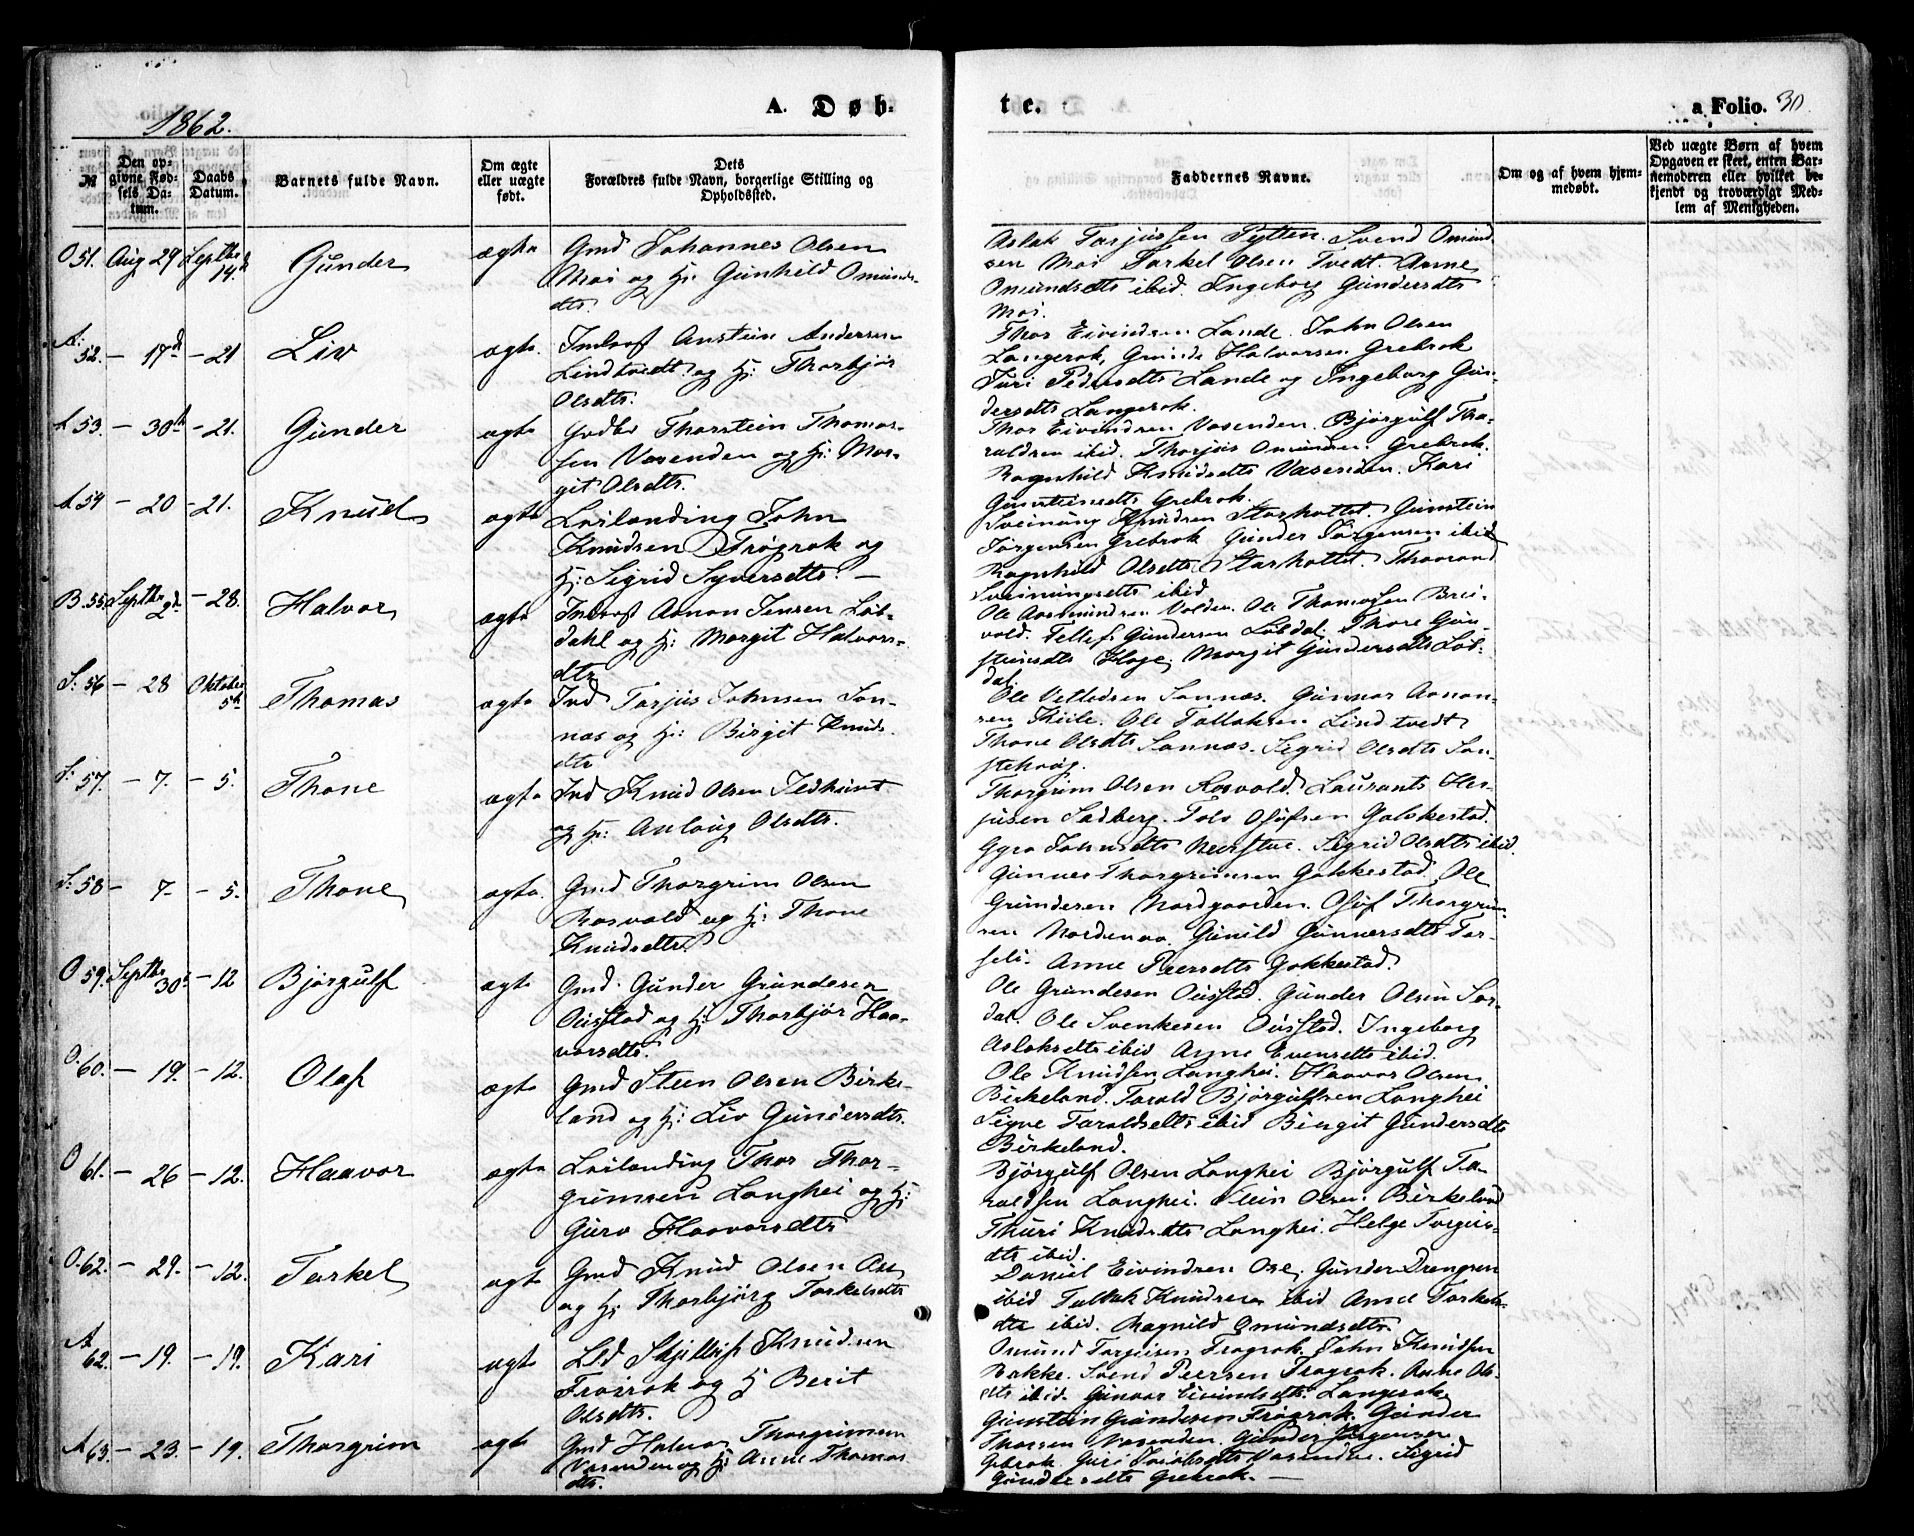 1862.
A. Døb-
te.
a Folio. 30.
№
Den op-
givne Fød-
sels Da-
tum.
Daabs
Datum.
Barnets fulde Navn.
Om ægte
eller uægte
født.
Dets
Forældres fulde Navn, borgerlige Stilling og
Opholdssted.
Faddernes Navne.
Om og af hvem hjem-
medøbt.
Ved uægte Børn af hvem
Opgaven er skeet, enten Bar-
nemoderen eller hvilket be-
kjendt og troværdigt Med-
lem af Menigheden.
O 51. Aug 29 Septbr 14. Gunder ægte
Gmd Johannes Olsen
Moi og Hj: Gunhild Omunds-
dtr.
Aslak Tarjussen Tytten. Svend Omund
sen Moi Tarkel Olsen Tvedt. Anne
Omundsdtr ibid. Ingeborg Gundersdtr
Moi.
A: 52. – 17 – 21 Liv ægte.
Anstein Andersen
Lindtvedt og Hj: Thorbjør
Olsdtr.
Thor Eivindsen Lande. John Olsen
Langerok, Halvorsen Grebrok
Juri Pedersdtr Lande og Ingeborg Gun-
dersdtr Langerok.
A 53. – 30 – 21. Gunder ægte
Thorstein Thomas-
sen Vasenden og Hj: Mar-
git Olsdtr.
Thor Eivindsen Vasenden. Bjørgulf Tha-
raldsen ibid. Thorjus Omundsen Grebrok.
Ragnhild Knudsdtr Vasenden. Kari
Gunsteinsdtr Grebrok.
A 54 – 20 – 21. Knud ægte
Leilænding John
Knudsen Frøgrok og
Hj: Sigrid Syversdtr. –
Sveinung Knudsen Storhottet. Gunstein
Jørgensen Grebrok Gunder Jørgensen ibid
Ragnhild Olsdtr Storhottet. Thorand
Sveinungsdtr ibid.
B. 55 Septbr 2 – 28. Halvor ægte
Aanon Jensen Løb-
dahl og Hj: Margit Halvors-
dtr
Ole Aasmundsen Valden. Ole Thomassen Brei-
vold. Tellef Gundersen Løbdal Thore Gun-
steinsdtr Hage. Margit Gundersdtr Løb-
dal.
S: 56 – 28 Oktober 5 Thomas ægte
Ind Tarjus Johnsen San-
nes og Hj: Birgit Knuds
dtr
Ole Vetlesen Sannæs. Gunnar Aanon-
sen Kiile. Ole Tallaksen Lindtvedt
Thone Olsdtr Sannæs. Sigrid Olsdtr
S: 57. – 7. – 5. Thone ægte
Ind Knud Olsen
og Hj: Anlaug Olsdtr.
Thorgrim Olsen Rosvold. Laurants
Sadberg. Tolv Olufsen Gakkestad.
Gyro Johnsdtr Neerstue. Sigrid Olsdtr ibid.
S: 58 – 7. – 5. Thone ægte.
Gmd Thorgrim Olsen
Rosvold og Hj: Thone
Knudsdtr
Gunner Thorgrimsen Gakkestad, Ole
Grundesen Nordgaarden. Oluf Thorgrim-
sen Nordenaa. Gunild Gunnersdtr Tor-
seli. Anne Peersdtr Gakkestad.
O 59. Septbr 30 – 12 Bjørgulf ægte
Gmd. Gunder Grundesen
Ousstad og Hj: Thorbjør Haa-
vorsdtr.
Ole Grundesen Ousstad. Gunder Olsen Sor-
dal. Ole Svenkesen Ousstad. Ingeborg
Aslaksdtr ibid Anne Evensdtr ibid.
O. 60. – 19. – 12. Olaf ægte
Gmd Steen Olsen Birke-
land og Hj: Liv Gundersdtr.
Ole Knudsen Langhei. Haavor Olsen
Birkeland. Tarald Bjørgulfsen Langhei
Signe Taraldsdtr ibid Birgit Gundersdtr
Birkeland.
O 61. – 26 – 12. Haavor ægte
Leilænding Thor Thor-
grimsen Langhei og Hj:
Guro Haavorsdtr
Bjørgulf Olsen Langhei Bjørgulf Ta-
raldsen Langhei. Stein Olsen Birkeland
Thuri Knudsdtr Langhei. Helge Torgus-
dtr ibid.
O. 62. – 29. – 12. Tarkel ægt
Gmd Knud Olsen Ose
og Hj: Thorbjørg Tarkelsdtr
Daniel Eivindsen Ose, Gunder Drengsen
ibid Tallak Knudsen ibid Anne Tarkels-
dtr ibid. Ragnild Omundsdtr.
A 62. – 19. – 19. Kari ægte
Knudsen
Frøirok og Hj Berit
Olsdtr.
Omund Torgeisen Frøgrok. John Knudsen
Bakke. Svend Peersen Frøgrok. Anne Ols-
dtr ibid. Gunvor Eivindsdtr Langerok
A 63. – 23. – 19. Thorgrim ægte
Gmd Halvor Thorgrimsen
Vasenden og Hj: Anne Thomas
dtr.
Gunstein Gundersen Frøgrok. Gunder
Thorsen Vasenden. Gunder Jørgensen
Gebrok. Guri Vasenden. Sigrid
Gundersdtr Grebrok. –